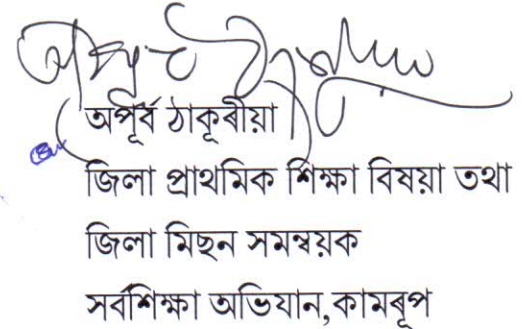 অপূৰ্ব ঠাকূৰীয়া
জিলা প্ৰাথমিক শিক্ষা বিষয়া তথা
জিলা মিছন সমন্বয়ক
সৰ্বশিক্ষা অভিযান,কামৰূপ